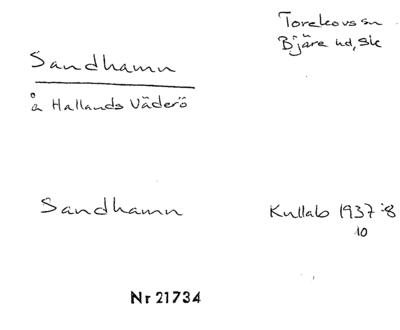 Torekovs sn
Bjäre hd, Sk
Sandhamn
å Hallands Väderö
Sandhamn
Kullab 1937:8
10
Nr 21734